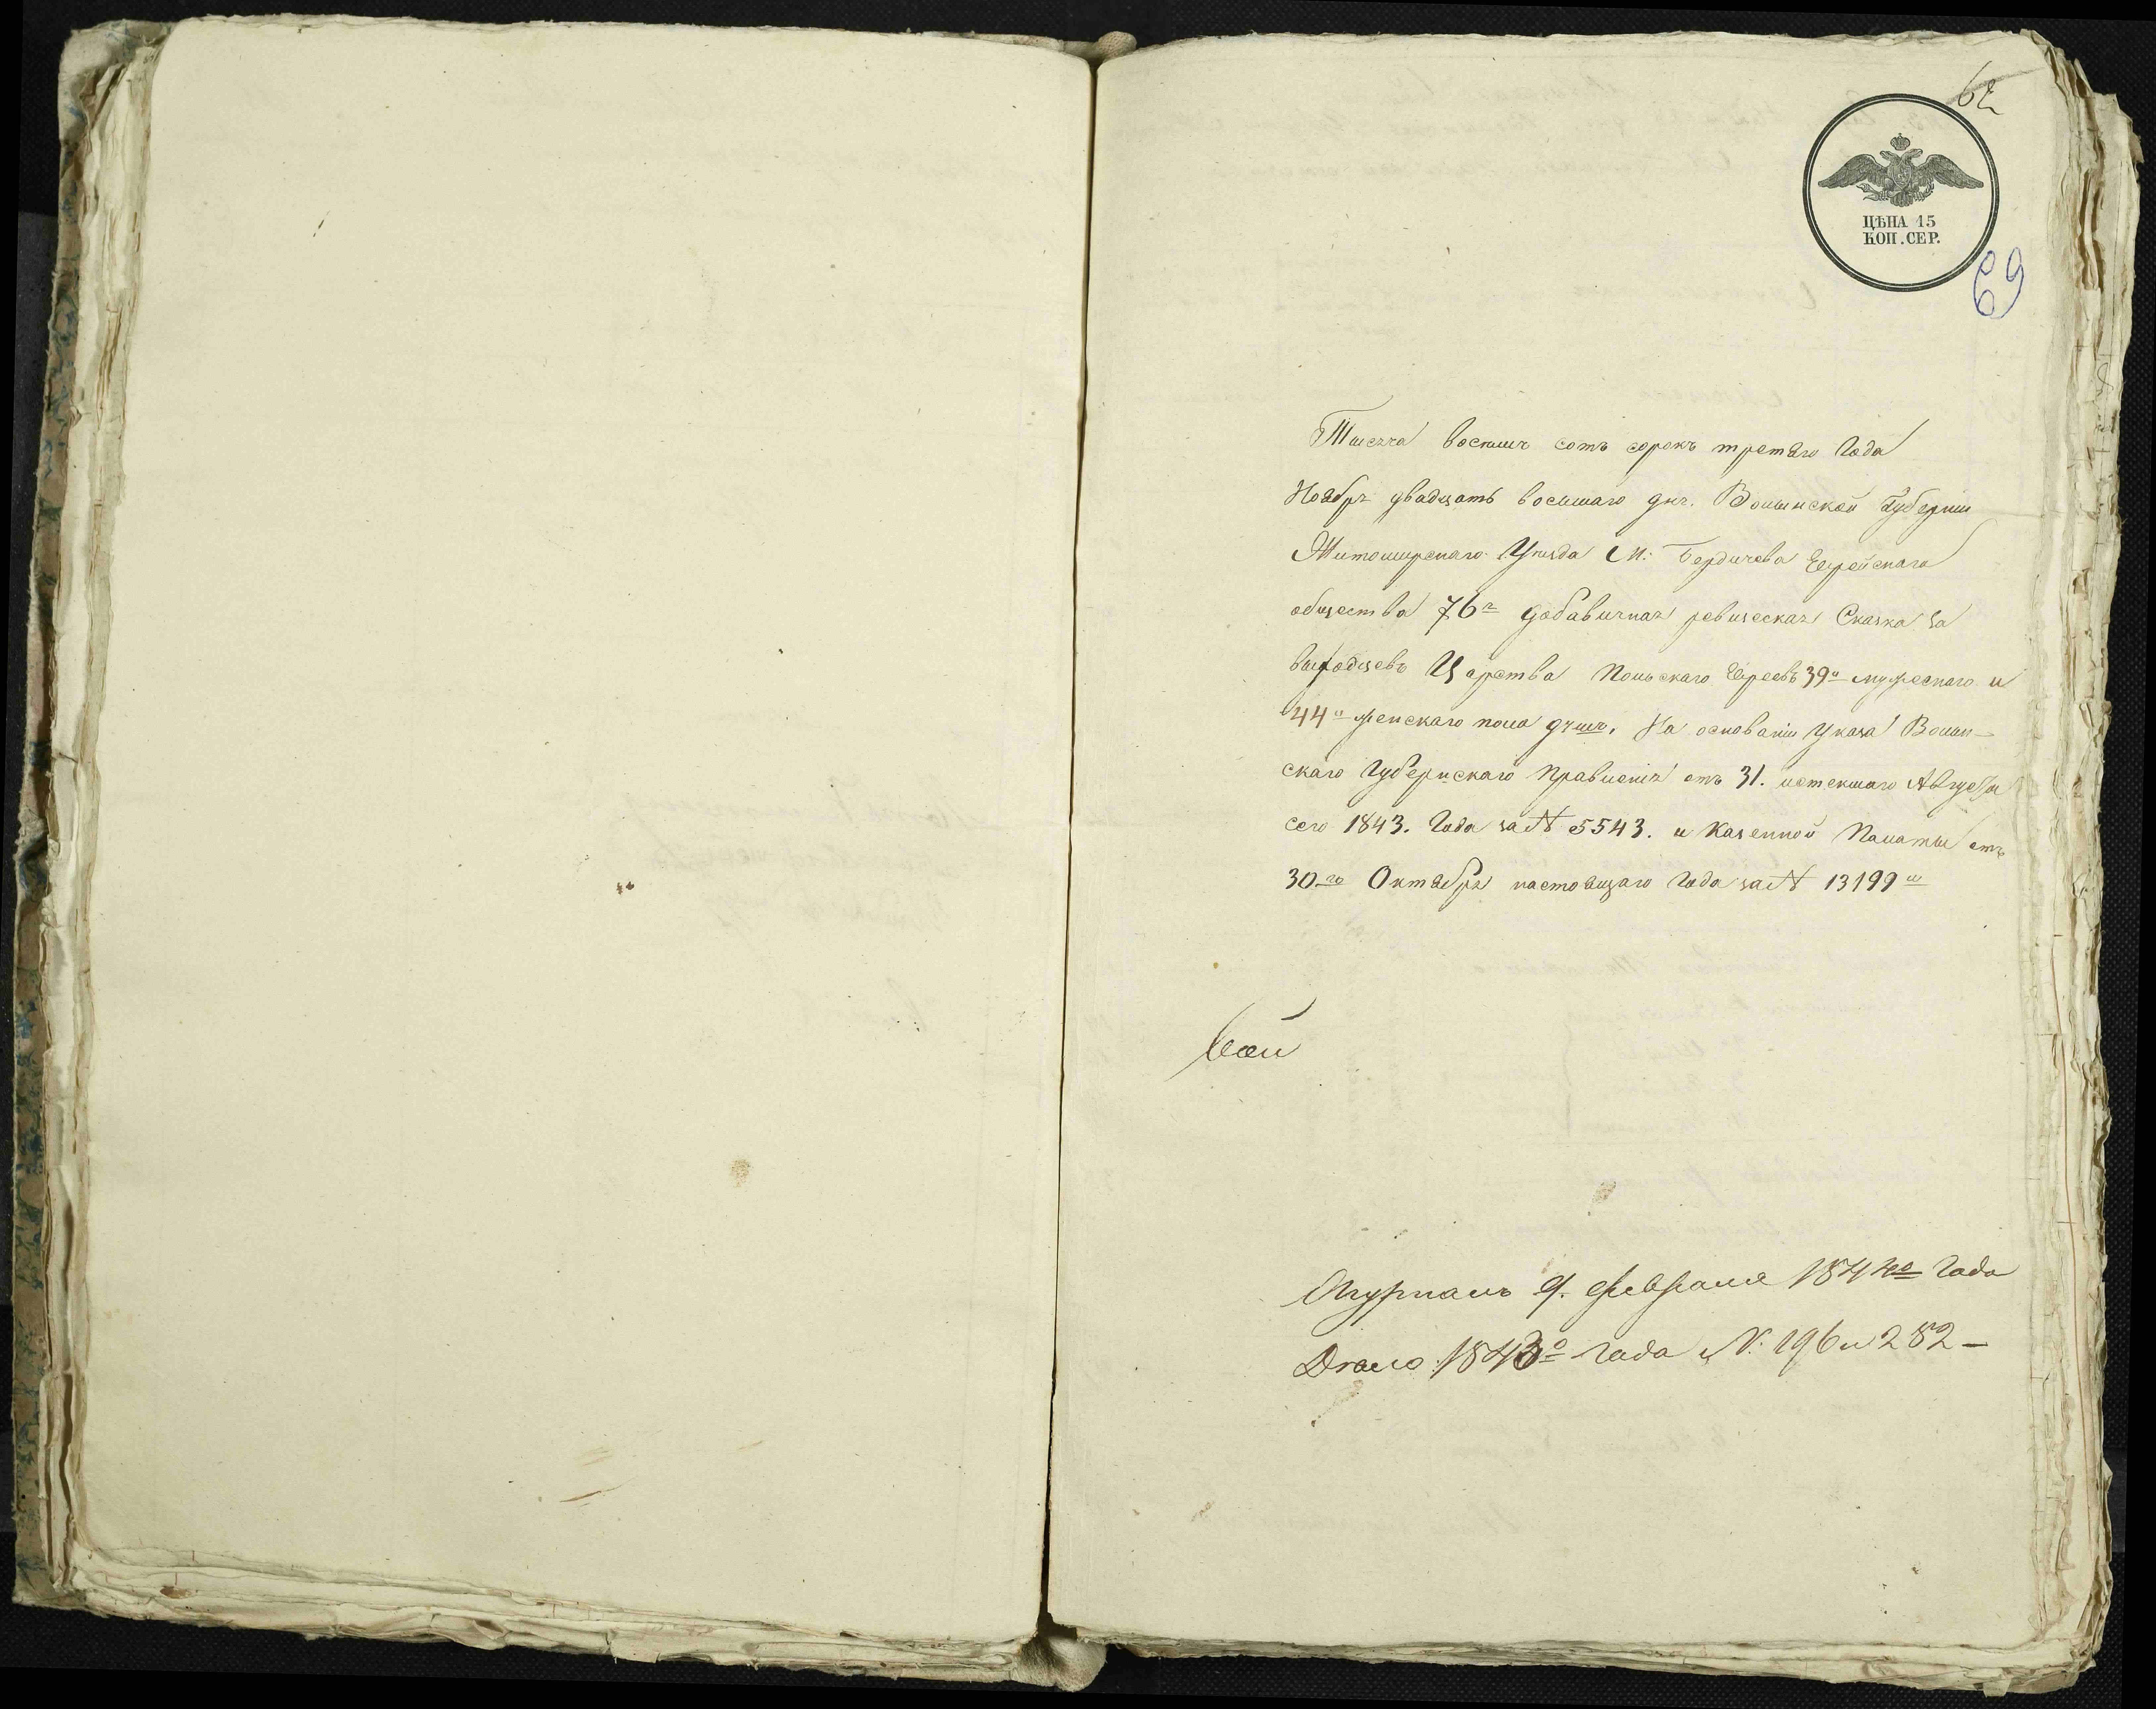 62
ЦѢНА 15
КОП. СЕР.
69
Тысяча восемь сотъ сорокъ третьяго Года
Ноября двадцать восьмаго дня. Волынской Губерніи
Житомирскаго Уѣзда М: Бердичева Еврейскаго
общества 76я добавичная ревизская Сказка за
выходцевъ Царства Польскаго Евреевъ 39о мужескаго и
44о женскаго пола душъ. На основаніи Указа Волын-
скаго Губернскаго Правленія отъ 31. истекшаго Августа
сего 1843. Года за № 5543. и Казенной Палаты отъ
30го Октября настоящаго Года за № 13199м
Журналъ 9. Февраля 1844го Года
Дѣло 1843о Года №: 196 и 282 —